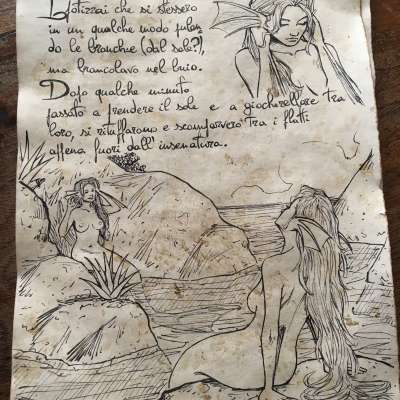 Ipotizzai che si stessero
in un qualche modo pulen-
do le branchie (dal sole?),
ma brancolavo nel buio.
Dopo qualche minuto
passato a prendere il sole e a giocherellare tra
loro, si rituffarono e scomparvero tra i flutti
appena fuori dall'insenatura.